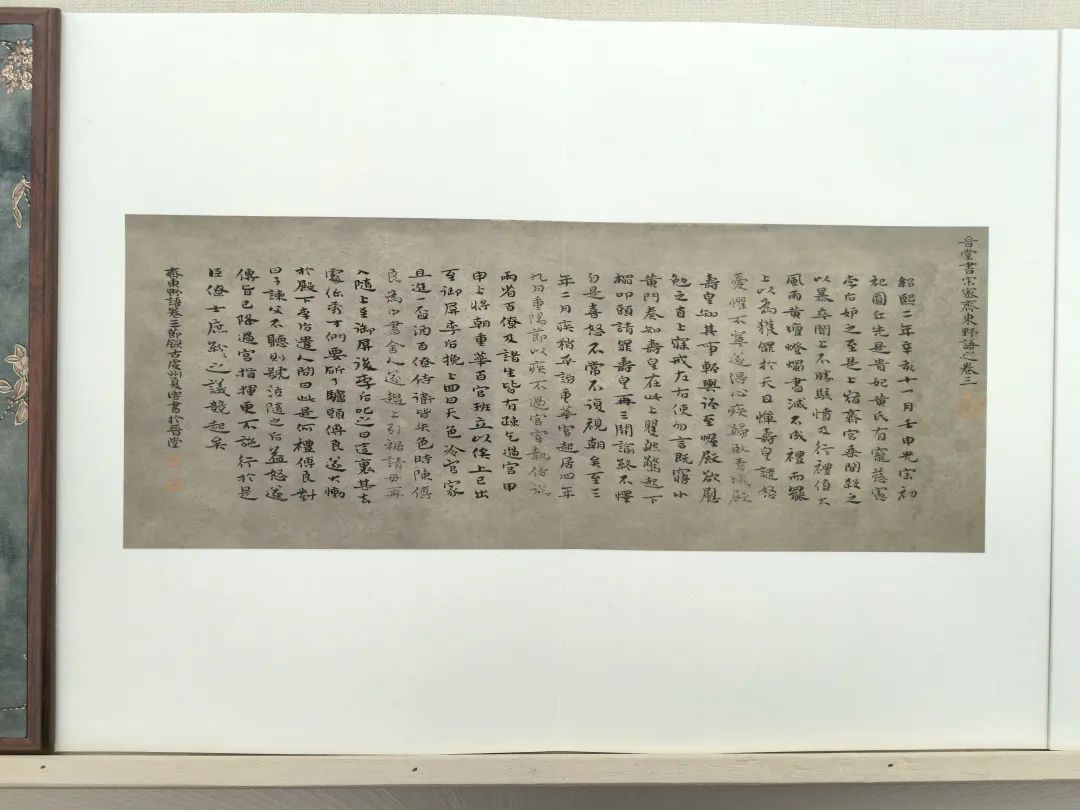 晉堂書宋密齊東野語之卷三
紹熙二年辛亥十一月壬申光宗初
祀圜丘先是貴妃黃氏有寵慈懿
李后妒之至是上宿齋宮乘間殺之
以暴卒聞上不勝駭憤及行禮值大
風雨黃壇燈燭書滅不成禮而罷
上以為獲罪於天且憚壽皇譴怒
憂懼不寧遂得心疾歸臥青城殿
壽皇知其事輕輿徑至幄殿欲慰
勉之直上寐戒左右使勿言既寤小
黃門奏知壽皇在此上矍然驚起下
榻叩頭請罪壽皇再三開諭終不懌
自是喜怒不常不復視朝矣至三
年二月疾稍平詣重華宮起居四年
九月重陽節以疾不過宮宰執侍從
兩省百僚及諸生皆有疏乞過宮甲
申上將朝重華百官班立以俟上已出
至御屏李后挽上曰天色冷官家
且進一盃酒百僚侍衛皆失色時陳傅
良為中書舍人遂趨上引裾請毋再
入隨上至御屏後李后叱之曰這裏甚去
處你秀才們要斫了驢頭傅良遂大慟
於殿下李后遣人問曰此是何禮傅良對
曰子諫父不聽則號泣隨之后益怒遂
傳旨已降過宮指揮更不施行於是
臣僚士庶紛紛之議競起矣
齊東野語卷三節錄古慶州夏雲書於晉堂